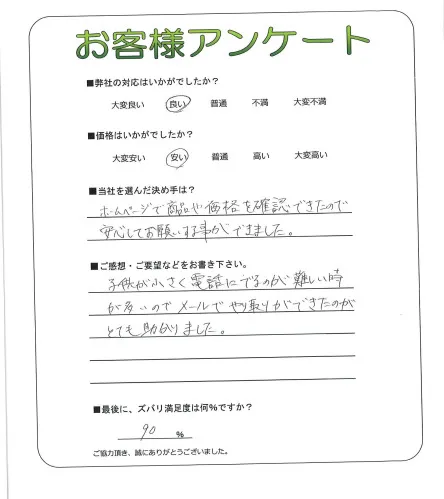 お客様アンケート
■弊社の対応はいかがでしたか？
大変良い 良い 普通 不満 大変不満
■価格はいかがでしたか？
大変安い 安い 普通 高い 大変高い
■当社を選んだ決め手は？
ホームページで商品や価格を確認できたので
安心してお願いする事ができました。
■ご感想・ご要望などをお書き下さい。
子供が小さく電話にでるのが難しい時
が多いのでメールでやり取りができたのが
とても助かりました。
■最後に、ズバリ満足度は何%ですか？
90 %
ご協力頂き、誠にありがとうございました。